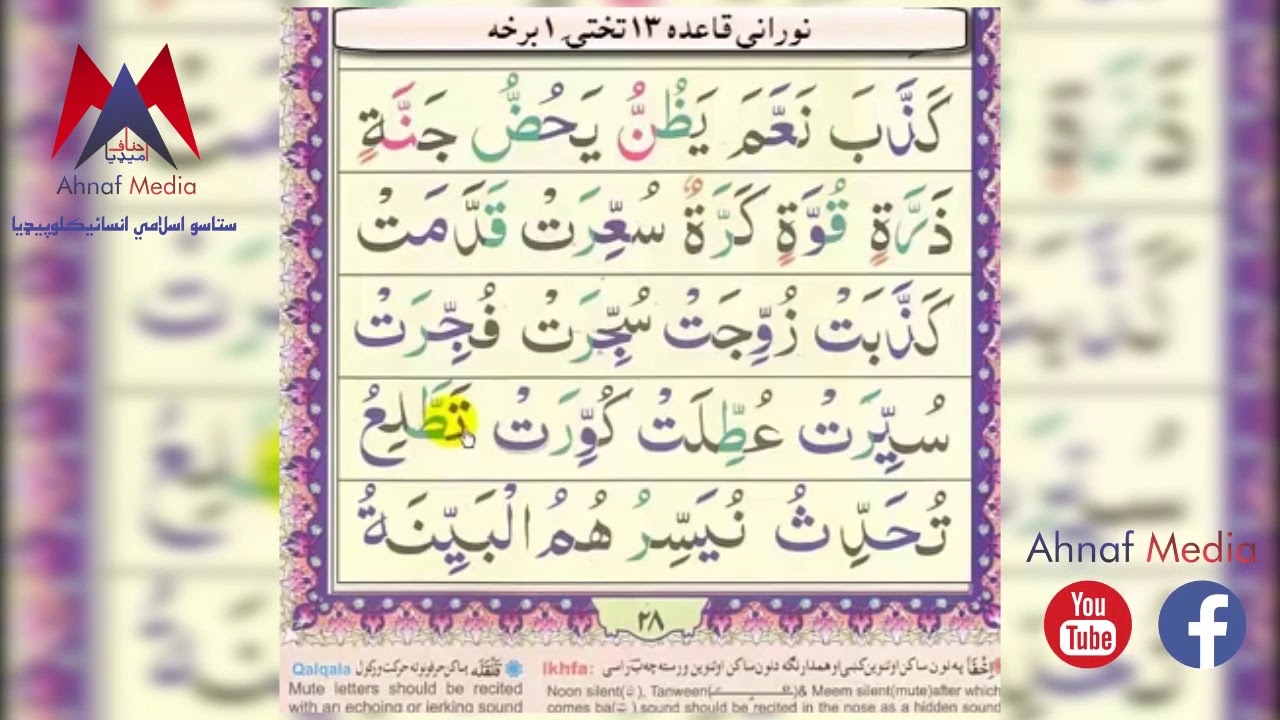 نورانی قاعده ۱۳ تختۍ ۱ برخه
كَذَّبَ نَعَّمَ يَظُنُّ يَحُضُّ جَنَّةٍ
ذَرَّةٍ قُوَّةٍ كَرَّةٌ سُعِّرَتْ قَدَّمَتْ
كَذَّبَتْ زُوِّجَتْ سُجِّرَتْ فُجِّرَتْ
سُيِّرَتْ عُطِّلَتْ كُوِّرَتْ تَطَّلِعُ
تُحَدِّثُ نُيَسِّرُ هُمُ الْبَيِّنَةُ
۲۸
Qalqala قَلْقَلَه
Mute letters should be recited
with an echoing or jerking sound
Ikhfa:
Noon silent(ن), Tanween( )& Meem silent(mute)after which
comes ba(ب) sound should be recited in the nose as a hidden sound
احناف میډیا
Ahnaf Media
ستاسو اسلامي انسائيکلوپيډيا
Ahnaf Media
You
Tube
f